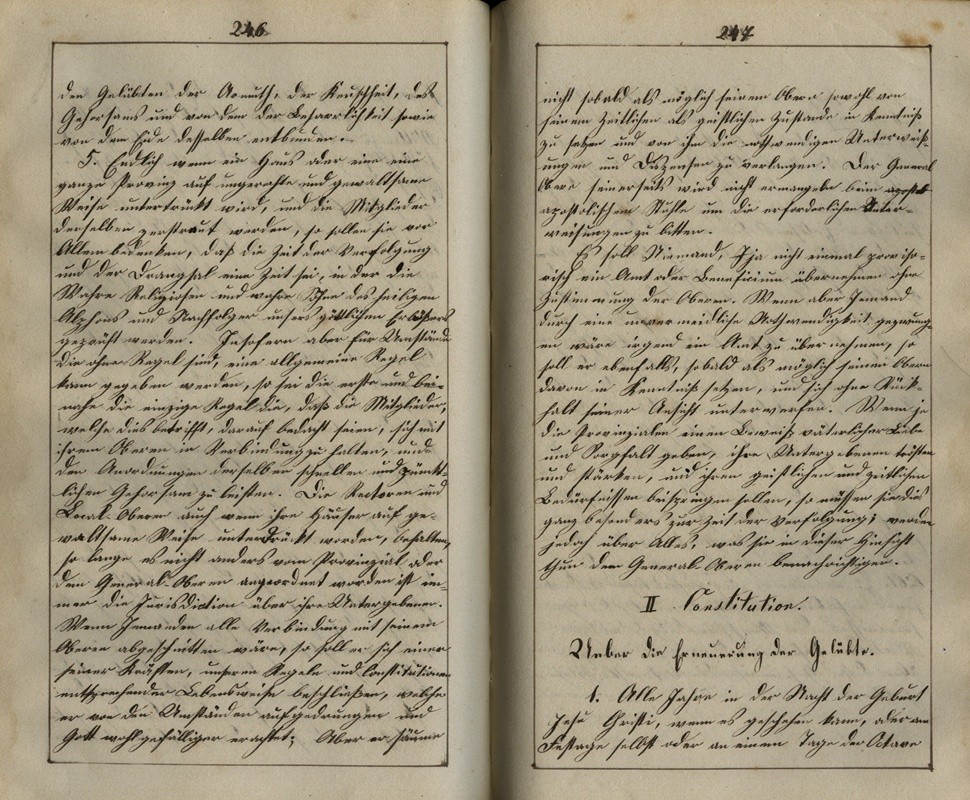 246
den Gelübten der Armuth, der Keuschheit, des
Gehorsams und von dem der Beharrlichkeit sowie
von dem Eide desselben entbunden.
5. Endlich wenn ein Haus oder eine eine
ganze Provinz auf ungerechte und gewaltsame
Weise unterdrückt wird, und die Mitglieder
derselben zerstreut werden, so sollen sie vor
Allem bedenken, daß die Zeit der Verfolgung
und der Drangsal eine Zeit sei, in der die
Wahre Religiosen und wahre Söhne des heiligen
Alphons und Nachfolger unsers göttlichen Erlösers
geprüft werden. Insofern aber für Umstände
die ohne Regel sind, eine allgemeine Regel
kann gegeben werden, so sei die erste und bei-
nahe die einzige Regel die, daß die Mitglieder,
welche dies betrifft, darauf bedacht seien, sich mit
ihren Oberen in Verbindung zu halten, und
den Anordnungen derselben schnellen und pünkt-
lichen Gehorsam zu leisten. Die Rectoren und
Local-Oberen auch wenn ihre Häuser auf ge-
waltsame Weise unterdrückt worden, behalten,
so lange es nicht anders vom Provinzial oder
dem General-Oberen angeordnet worden ist im-
mer die Jurisdiction über ihre Untergebenen.
Wenn Jemanden alle Verbindung mit seinem
Oberen abgeschnitten wäre, so soll er sich einer
seiner Kräften, unseren Regeln und Constitutionen
entsprechender Lebensweise beschließen, welche
er von den Umständen aufgedrungen und
Gott wohlgefälliger erachtet; Aber er säume
247
nicht sobald als möglich seinem Obern sowohl von
seinem zeitlichen als geistlichen Zustande in Kenntniß
zu setzen und von ihm die nothwendigen Unterweis-
ungen und Dispensen zu verlangen. Der General
Obere seinerseits wird nicht ermangeln beim apost
apostolischem Stuhle um die erforderlichen Unter-
weisungen zu bitten.
Es soll Niemand, ja nicht einmal proviso-
risch ein Amt oder Beneficium übernehmen ohne
Zustimmung der Oberen. Wenn aber Jemand
durch eine unvermeidliche Nothwendigkeit gezwung-
en wäre irgend ein Amt zu übernehmen, so
soll er ebenfalls, sobald als möglich seinen Obern
davon in Kenntniß setzen, und sich ohne Rück-
halt seiner Ansicht unterwerfen. Wenn je
die Provinzialen einen Beweiß väterlicher Liebe
und Sorgfalt geben, ihre Untergebenen trösten
und stärken, und ihren geistlichen und zeitlichen
Bedürfnissen beispringen sollen, so müssen sie dies
ganz besonders zur Zeit der Verfolgung; werden
jedoch über Alles, was sie in dieser Hinsicht
thun dem General-Oberen benachrichtigen.
II Constitution.
Ueber die Erneuerung der Gelübte.
1. Alle Jahre in der Nacht der Geburt
Jesu Christi, wenn es geschehen kann, oder am
Festage selbst oder an einem Tage der Octave